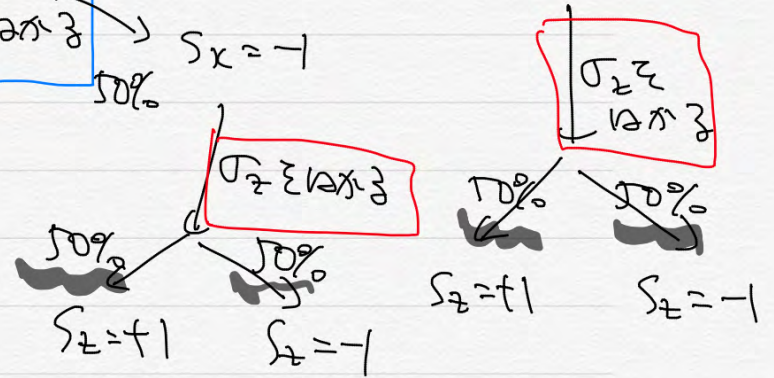 はかる
50%
Sx = -1
σzをはかる
50%
50%
Sz = +1
Sz = -1
σzを
はかる
50%
50%
Sz = +1
Sz = -1